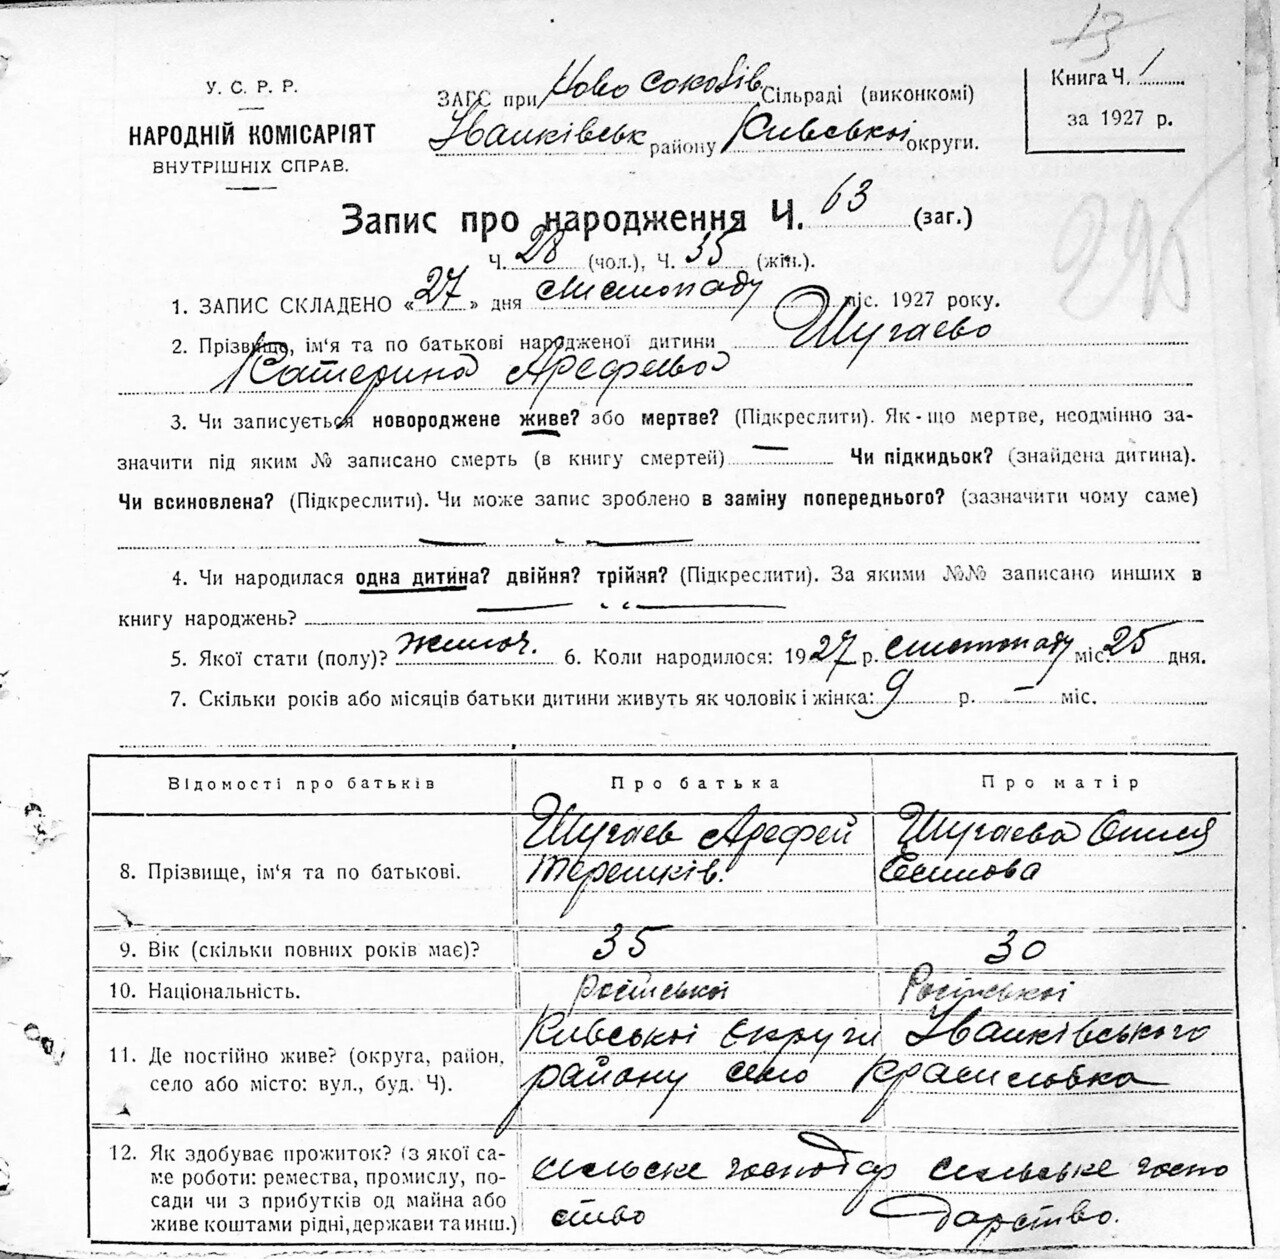 13
У. С. Р. Р.
НАРОДНІЙ КОМІСАРІЯТ
ВНУТРІШНІХ СПРАВ.
ЗАГС при Ново Соколів Сільраді (виконкомі)
Іванківськ району Київської округи.
Книга Ч. 1
за 1927 р.
Запис про народження Ч. 63 (заг.)
Ч. 28 (чол.), Ч. 35 (жін.).
295
1. ЗАПИС СКЛАДЕНО «27» дня листопаду міс. 1927 року.
2. Прізвище, ім'я та по батькові народженої дитини Шугаєво
Катерина Арефєєва
3. Чи записується новороджене живе? або мертве? (Підкреслити). Як-що мертве, неодмінно за-
значити під яким № записано смерть (в книгу смертей) — Чи підкидьок? (знайдена дитина).
Чи всиновлена? (Підкреслити). Чи може запис зроблено в заміну попереднього? (зазначити чому саме)
4. Чи народилася одна дитина? двійня? трійня? (Підкреслити). За якими №№ записано инших в
книгу народжень?
5. Якої стати (полу)? жіноч. 6. Коли народилося: 1927 р. листопаду міс. 25 дня.
7. Скільки років або місяців батьки дитини живуть як чоловік і жінка: 9 р. — міс.
Відомості про батьків Про батька Про матір
Шугаєв Арефей Шугаева
8. Прізвище, ім'я та по батькові. Терешків. Єсипова
9. Вік (скільки повних років має)? 35 30
10. Національність. російської Російської
Київської округи Іванківського
11. Де постійно живе? (округа, район,
село або місто: вул., буд. Ч). району село Красиловка
12. Як здобуває прожиток? (з якої са-
ме роботи: ремества, промислу, по-
сади чи з прибутків од майна або
живе коштами рідні, держави та инш.)
сільське господар сільське госпо
ство дарство.